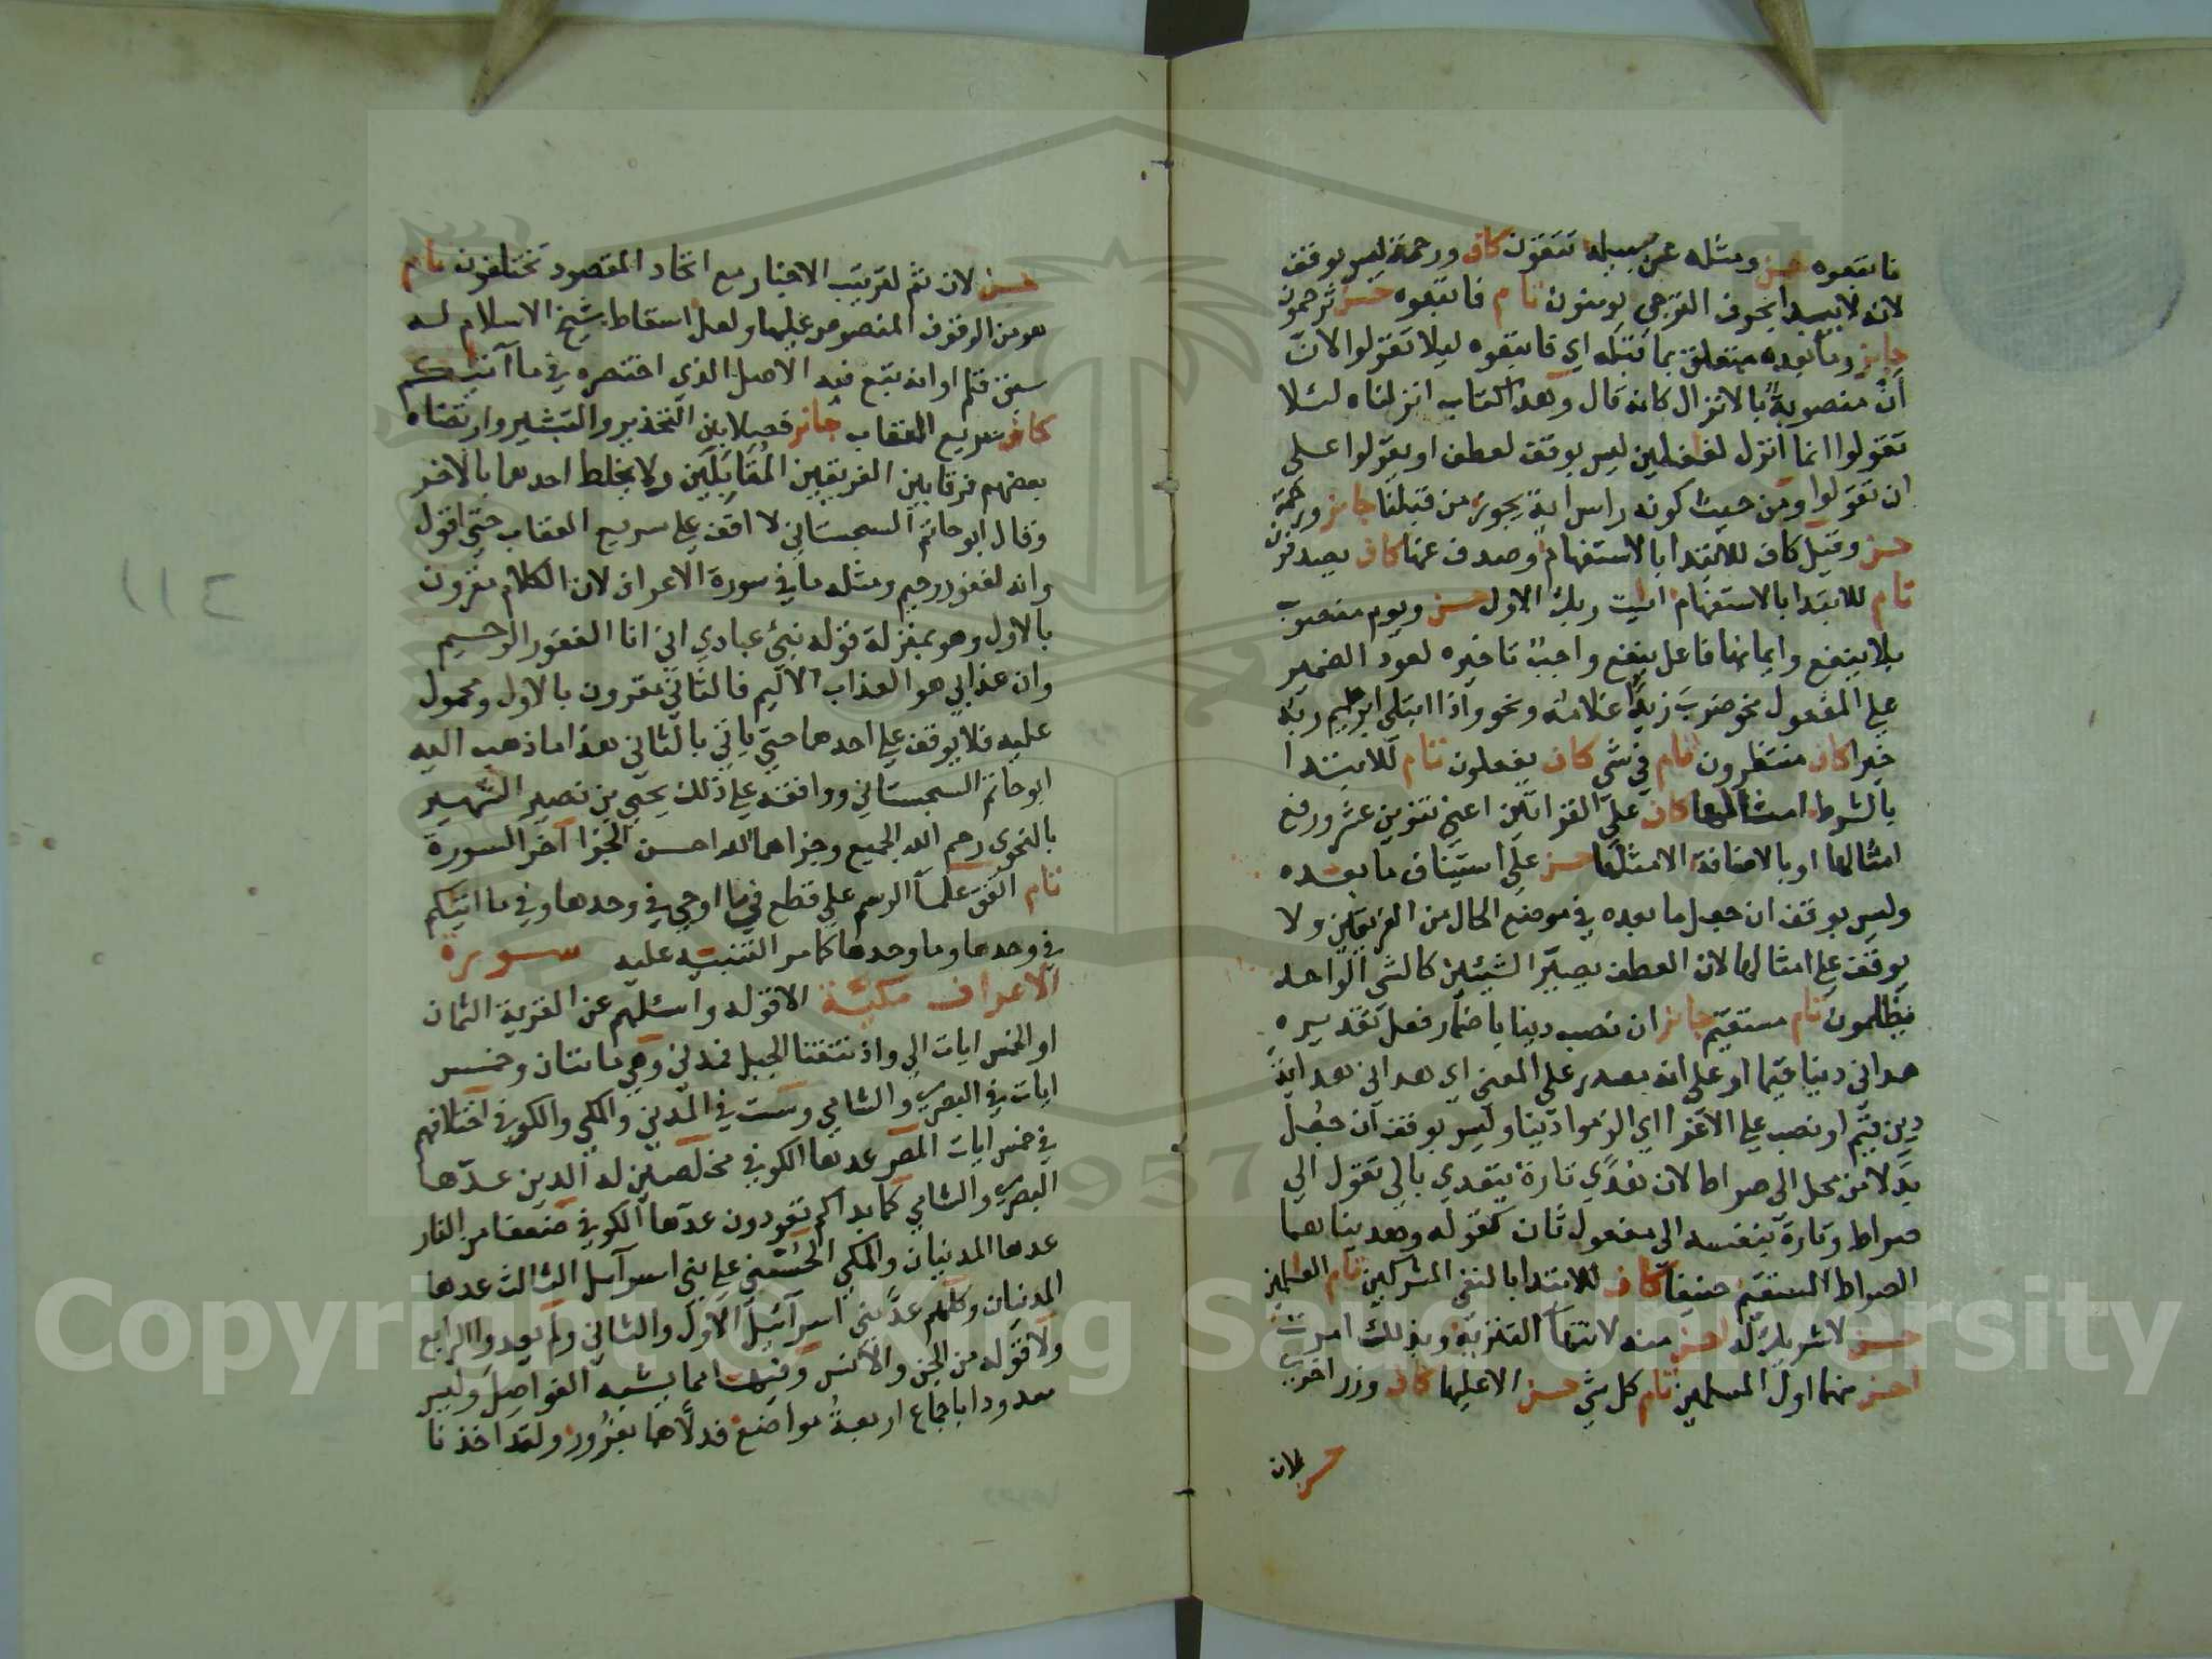 فاتبعوه حسن ومثله عن سبيله تتقون كاف ورحمة ليس بوقف
لانه لا يبدا بحرف الترجي يومنون تام فاتبعوه حسن ترحمون
جايز وما بعده متعلق بما قبله اي فاتبعوه ليلا تقولوا لان
ان منصوبة بالانزال كانه قال وهذا كتاب انزلناه لئلا
تقولوا انما انزل لغفلين ليس بوقف لعطف او يقولوا على
ان تقولوا ومن حيث كونه راس اية يجوز من قبلنا جايز ورحمة
حسن وقيل كاف للابتدا بالاستفهام وصدف عنها كاف يصدفون
تام للابتدا بالاستفهام ايت ربك الاول حسن ويوم منصوب
بلا ينفع وايمانها فاعل ينفع واجب تاخيره لعود الضمير
على المفعول نحو ضرب زيدا غلامه ونحو واذا ابتلى ابرهيم ربه
خيرا كاف منتظرون تام في شي كاف يفعلون تام للابتدا
بالشرط امثالها كاف على القراتين اعني تنوين عشر ورفع
امثالها او بالاضافة الامثلها حسن على استيناف ما بعده
وليس بوقف ان جعل ما بعده في موضع الحال من الفريقين ولا
يوقف على امثالها لان العطف يصير الشيئين كالشي الواحد
يظلمون تام مستقيم جايز ان نصب دينا باضمار فعل تقديره
هداني دينا قيما او على انه مصدر على المعنى اي هداني هداية
دين قيم او نصب على الاغرا اي الزموا دينا وليس بوقف ان جعل
بدلا من محل الى صراط لان هدي تارة يتعدي بالي تقول الي
صراط وتارة بنفسه الى مفعول ثان كقوله وهديناهما
الصراط المستقيم حنيفا كاف للابتدا بالنفي المشركين تام العلمين
حسن لا شريك له احسن منه لانتها التنزيه وبذلك امرت
احسن منهما اول المسلمين تام كل شي حسن الا عليها كاف وزر اخرى
حسن لان
حسن لان ثم لترتيب الاخبار مع اتحاد المقصود تختلفون تام
هو من الوقوف المنصوص عليها ولعل اسقاط شيخ الاسلام له
سبق قلم او انه تبع فيه الاصل الذي اختصره في ما آتيكم
كاف سريع العقاب جائز فصلا بين التحذير والتبشير وارتضاه
بعضهم فرقا بين الفريقين المقابلين ولا يخلط احدهما بالاخر
وقال ابو حاتم السجستاني لا اقف على سريع العقاب حتى اقول
وانه لغفور رحيم ومثله ما في سورة الاعراف لان الكلام مقرون
بالاول وهو بمنزلة قوله نبئ عبادي اني انا الغفور الرحيم
وان عذابي هو العذاب الاليم فالثاني مقرون بالاول ومحمول
عليه فلا يوقف على احدهما حتى ياتي بالثاني هذا ما ذهب اليه
ابو حاتم السجستاني ووافقه على ذلك يحيى بن نصير الشهير
بالنحوي رحم الله الجميع وجزاهما الله احسن الجزا آخر السورة
تام اتفق علما الرسم على قطع في ما اوحي في وحدها وفي ما اتيكم
في وحدها وما وحدها كما مر التنبيه عليه سورة
الاعراف مكية الا قوله واسئلهم عن القرية الثمان
او الخمس ايات الي واذ نتقنا الجبل فمدني وهي مائتان وخمس
ايات في البصري والشامي وست في المدني والمكي والكوفي اختلافهم
في خمس ايات المص عدها الكوفي مخلصين له الدين عدها
البصري والشامي كما بداكم تعودون عدها الكوفي ضعفا من النار
عدها المدنيان والمكي الحسنى على بني اسرآيل الثالث عدها
المدنيان وكلهم عد بني اسرآئيل الاول والثاني ولم يعدوا الرابع
ولا قوله من الجن والانس وفيها مما يشبه الفواصل وليس
معدودا باجماع اربعة مواضع فدلاهما بغرور ولقد اخذنا
Copyright © King Saud University
1957